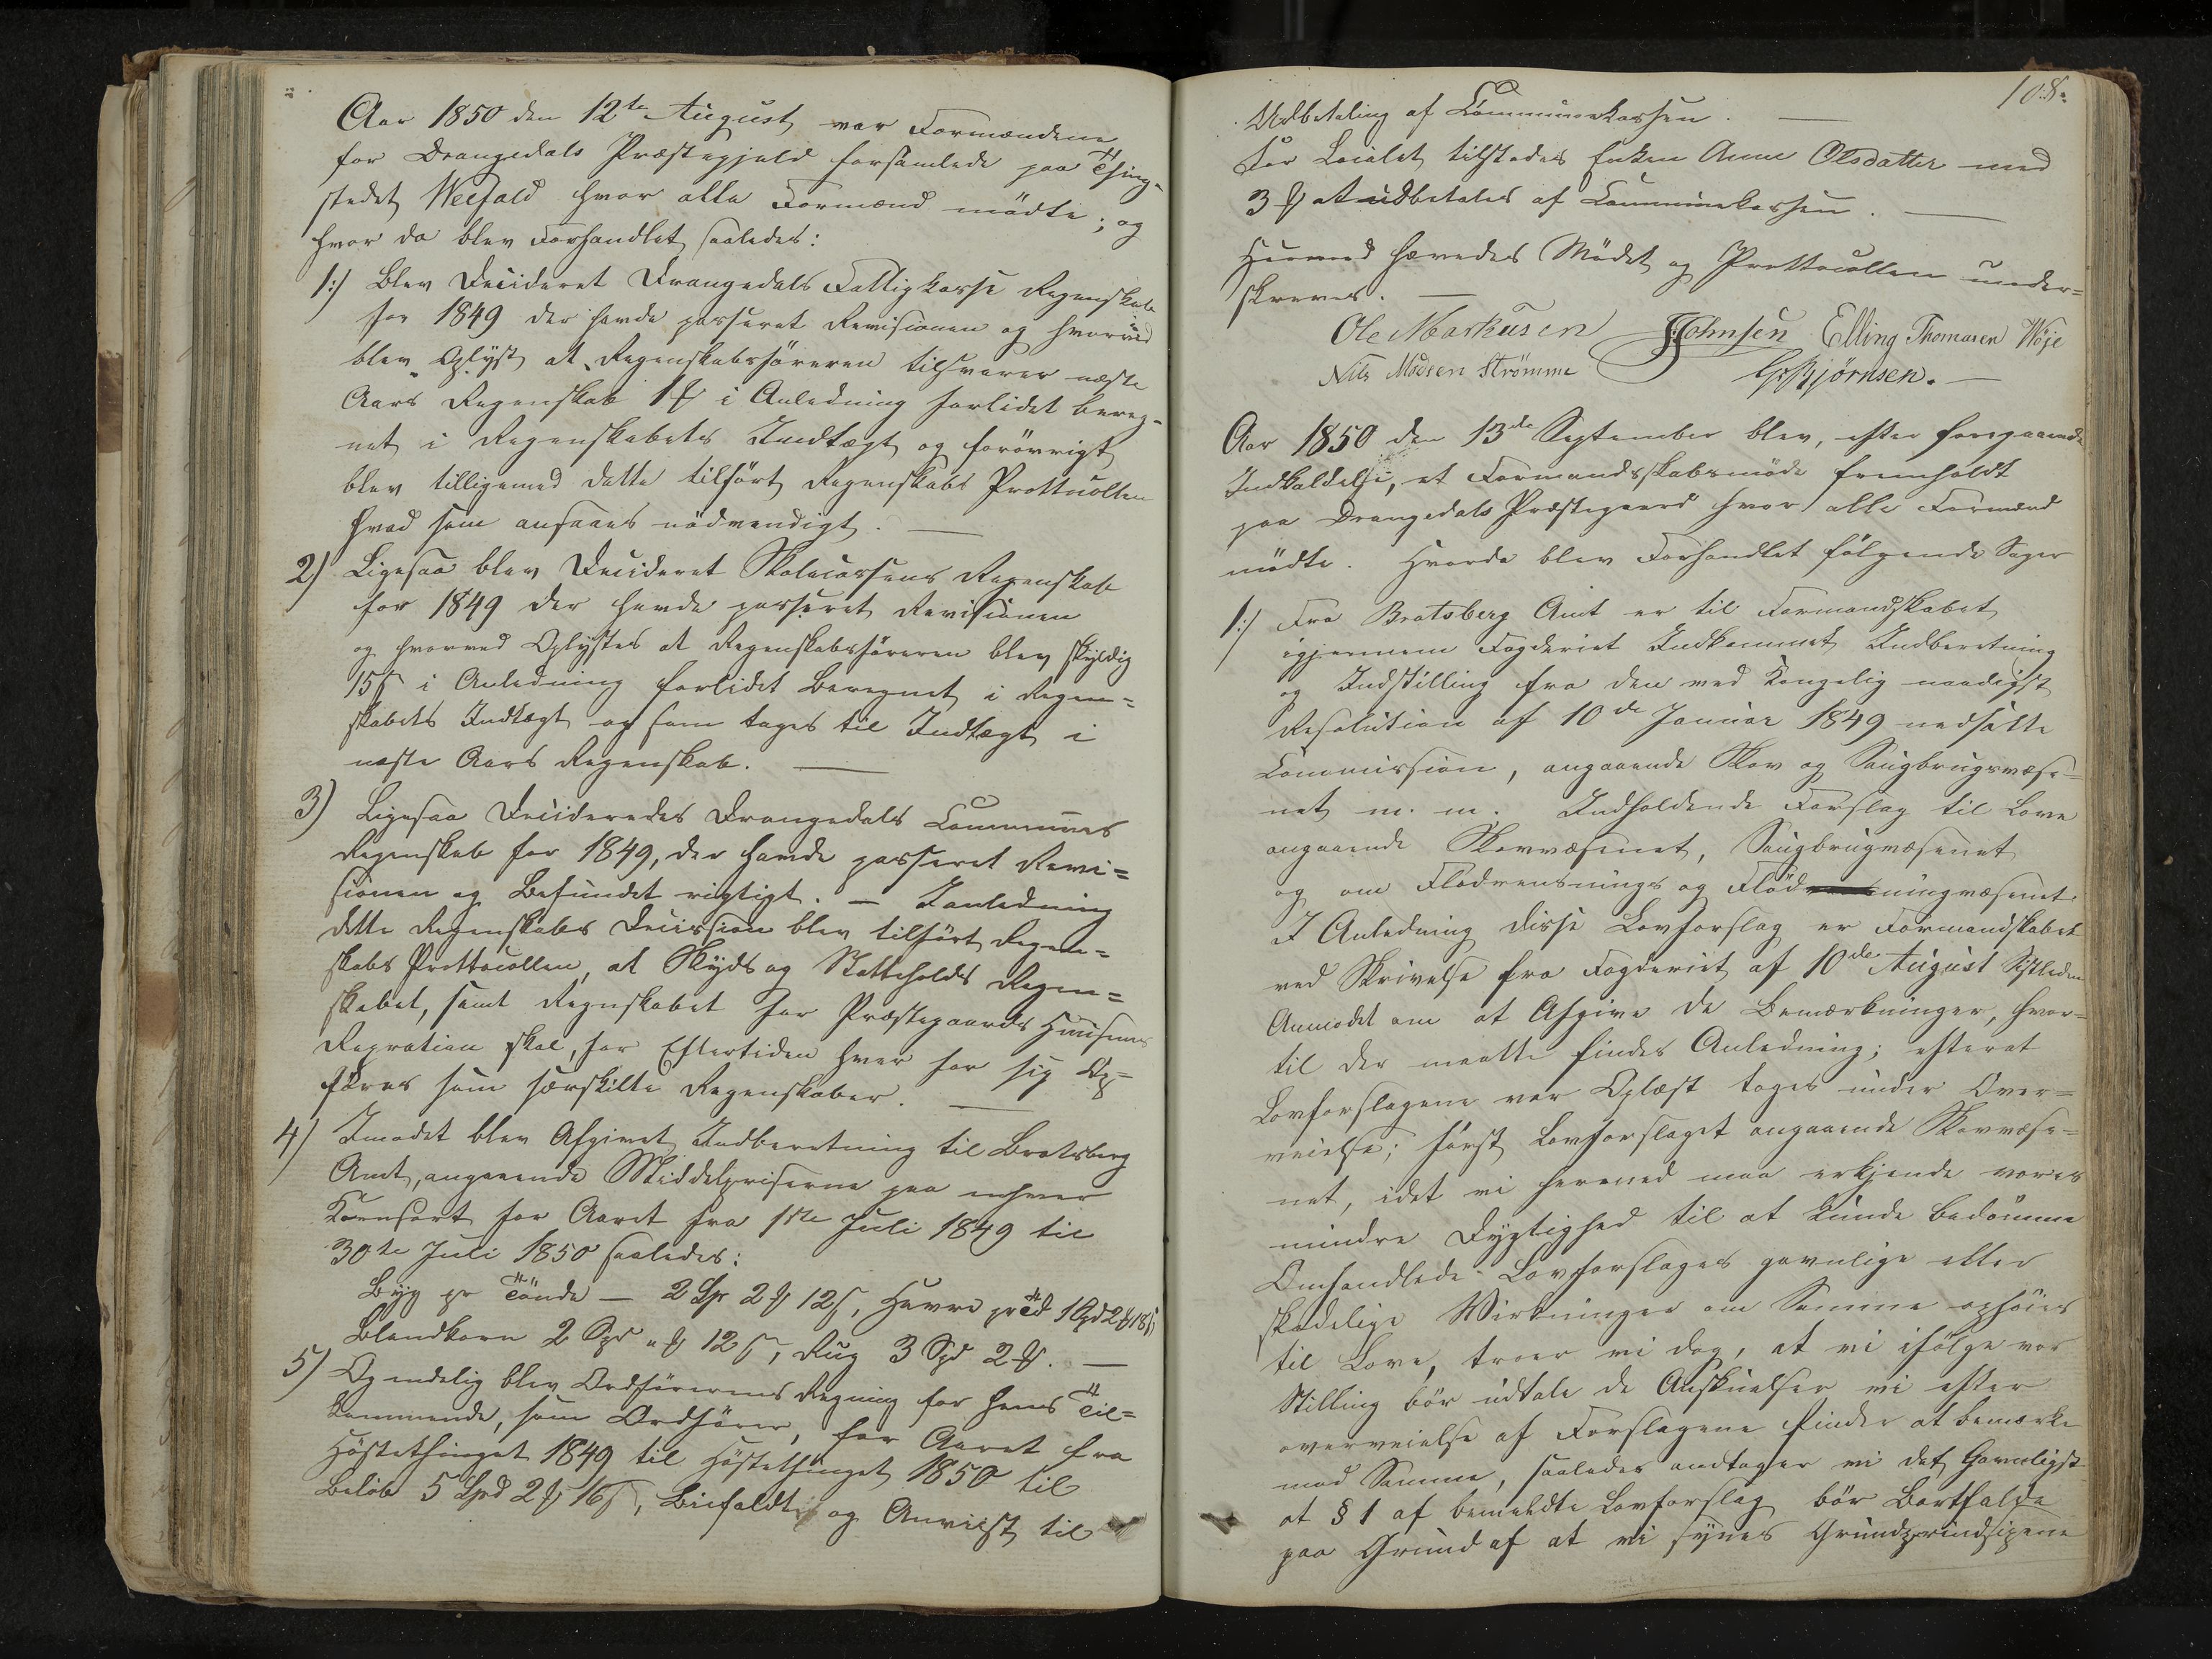 Aar 1850 den 12te August var Formændene
for Drangedals Præstegjeld forsamlede paa Thing-
stedet Neefald hvor alle Formænd mödte; og
hvor da blev Forhandlet saaledes:
1:) Blev Decideret Drangedals Fattigkasse Regenskab
for 1849 der havde passeret Revisionen og hvorved
blev Oplyst at Regenskabsföreren tilsvarer næste
Aars Regenskab 1 ß i Anledning forlidet bereg-
net i Regenskabets Indtægt og forövrigt
blev tilligemed dette tilfört Regenskabs Prottocollen
hvad som ansaaes nödvendigt. —
2) Ligesaa blev Decideret Skolecassens Regenskab
for 1849 der havde passeret Revisionen
og hvorved Oplystes at Regenskabsföreren blev skyldig
15 ß i Anledning forlidet Beregnet i Regen=
skabets Indtægt og som tages til Indtægt i
næste Aars Regenskab. —
3) Ligesaa Decideredes Drangedals Communes
Regenskab for 1849, der havde passeret Revi=
sionen og Befundet rigtigt. — I anledning
dette Regenskabs Decission blev tilfört Regen=
skabs Prottocollen, at Skyds og Skatteholds Regen=
skabet, samt Regnskabet for Præstegaards Huusenes
Repration skal, for Eftertiden hver for sig Op=
föres som særskilte Regenskaber. —
4) Imodet blev Afgivet Indberetning til Bratsberg
Amt, angaaende Middelpriserne paa enhver
Kornsort for Aaret fra 1ste Juli 1849 til
30te Juli 1850 saaledes:
Byg pr Tönde — 2 Sp 2 ₰ 12 ß, Havre pr Td 1 Spd 2 ₰ 18 ß
Blandkorn 2 Spd " ₰ 12 ß, Rug 3 Spd 2 ₰. —
5) Og endelig blev Ordförerens Regning for hans Til=
kommende, som Ordförer, for Aaret fra
Höstethinget 1849 til Höstethinget 1850 til
Belöb 5 Spd 2 ₰ 16 ß, Biefaldt og Anviist til
108.
Udbetaling af Communekassen. —
For Locialet tilstedes Enken Anne Olsdatter med
3 ₰ at udbetales af Communekassen. —
Hermed hævedes Mödet og Prottocollen under=
skreves. —
Ole Markusen JJohnsen Elling Thomasen Wöje
Nils Madsen Strömme G Bjørnsen. —
Aar 1850 den 13de September blev, efter foregaaende
Indkaldelse, et Formandsskabsmöde fremholdt
paa Drangedals Præstegaard hvor alle Formænd
mödte. Hvorda blev Forhandlet fölgende Sager
1:) Fra Bratsberg Amt er til Formandskabet
igjennem Fogderiet Indkommet Indberetning
og Indstilling fra den ved Kongelig naadigst
Resolution af 10de Januar 1849 nedsatte
Commission, angaaende Skov og Saugbrugsvæse=
net m. m. Indholdende Forslag til Love
angaaende Skovvæsenet, Saugbrugvæsenet
og om Flodrensnings og Flödningvæsenet.
I Anledning disse Lovforslag er Formandskabet
ved Skrivelse fra Fogderiet af 10de August Sistleden
Anmodet om at Afgive de Bemærkninger, hvor=
til der maatte findes Anledning; efterat
Lovforslagene var Oplæst toges under Over=
veielse; först Lovforslaget angaaende Skovvæse=
net, idet vi herved maa erkjende vores
mindre Dygtighed til at kunde bedömme
Omhandlede Lovforslages gavnlige eller
skadelige Wirkninger om Samme ophöies
til Love, troer vi dog, at vi ifölge vor
Stilling bör udtale de Anskuelser vi efter
overveielse af Forslagene finder at bemærke
mod Samme, saaledes antager vi det Gavnligst
at § 1 af bemeldte Lovforslag bör Bortfalde
paa Grund af at vi synes Grundprindsipene